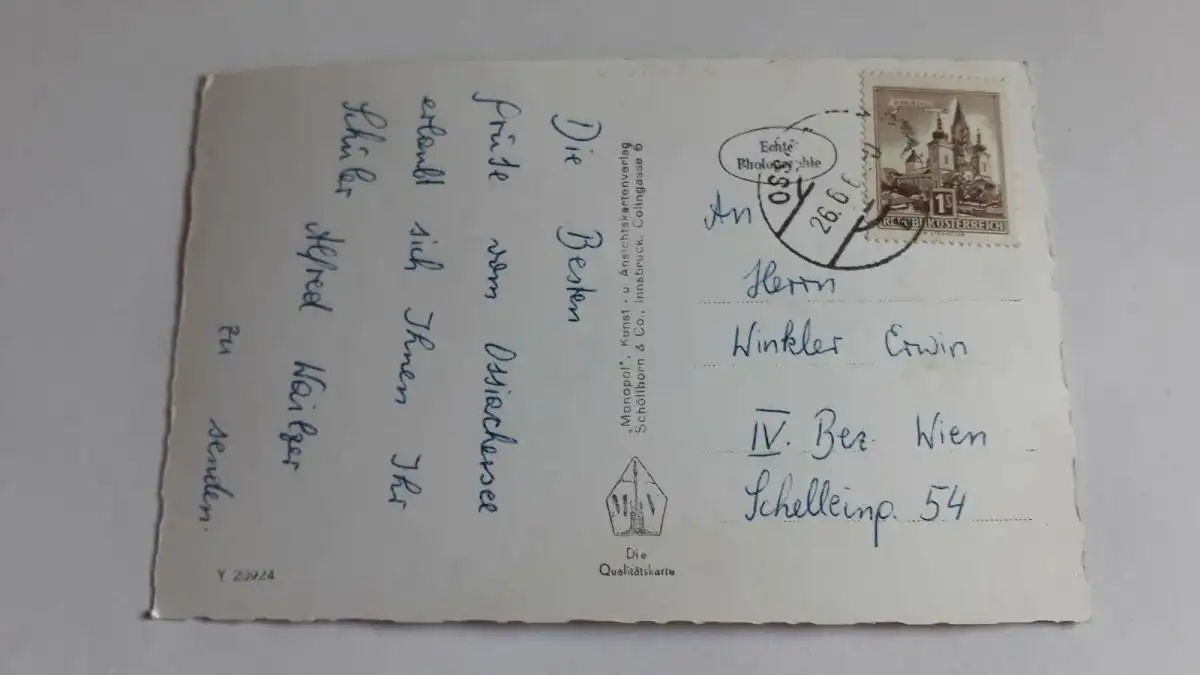 Die Besten
Grüße vom Ossiachersee
erlaubt sich Ihnen Ihr
Schüler Alfred
zu senden.
Y 20924
"Monopol", Kunst- u Ansichtskartenverlag
Schöllhorn & Co., Innsbruck, Colingasse 6
Die
Qualitätskarte
Echte
Photographie
OSS
26.6
1S
REPUBLIK ÖSTERREICH
An
Herrn
Winkler Erwin
IV. Bez. Wien
54